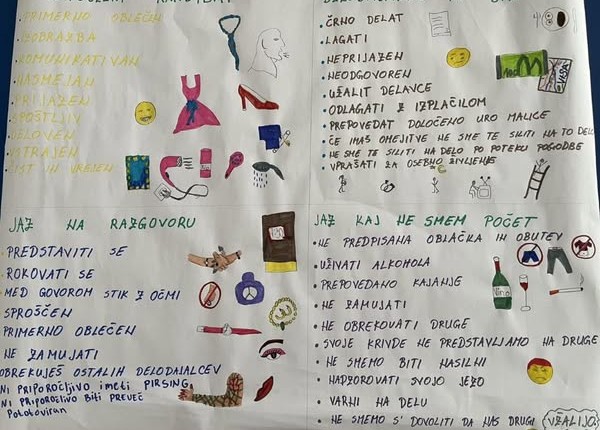 PRIMERNO OBLEČEN
IZOBRAZBA
KOMUNIKATIVAN
NASMEJAN
PRIJAZEN
SPOŠTLJIV
DELOVEN
VZTRAJEN
ČIST IN UREJEN
ČRNO DELAT
LAGATI
NEPRIJAZEN
NEODGOVOREN
UŽALIT DELAVCE
ODLAGATI Z IZPLAČILOM
PREPOVEDAT DOLOČENO URO MALICE
ČE IMAŠ OMEJITVE NE SME TE SILITI NA TO DELO
NE SME TE SILITI NA DELO PO POTEKU POGODBE
VPRAŠATI ZA OSEBNO ŽIVLJENJE
JAZ NA RAZGOVORU
PREDSTAVITI SE
ROKOVATI SE
MED GOVOROM STIK Z OČMI
SPROŠČEN
PRIMERNO OBLEČEN
NE ZAMUJATI
OBREKUJEŠ OSTALIH DELODAJALCEV
NI PRIPOROČLJIVO IMETI PIRSING
NI PRIPOROČLJIVO BITI PREVEČ
Potetoviran
JAZ KAJ NE SMEM POČET
NE PREDPISANA OBLAČKA IN OBUTEV
UŽIVATI ALKOHOLA
PREPOVEDANO KAJANJE
NE ZAMUJATI
NE OBREKOVATI DRUGE
SVOJE KRIVDE NE PREDSTAVLJAMO NA DRUGE
NE SMEMO BITI NASILNI
NADZOROVATI SVOJO JEZO
VARNI NA DELU
NE SMEMO SI DOVOLITI DA NAS DRUGI UŽALIJO
Vino